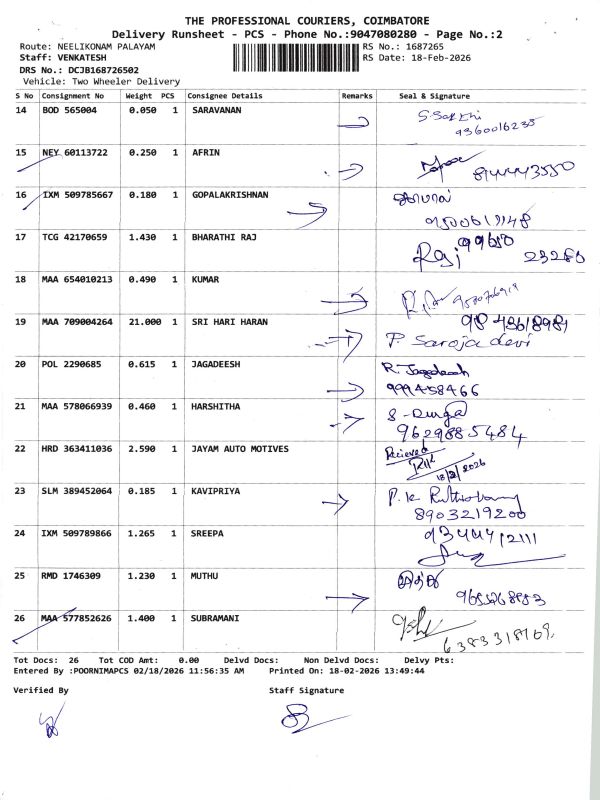 THE PROFESSIONAL COURIERS, COIMBATORE
Delivery Runsheet - PCS - Phone No.:9047080280 - Page No.:2
Route: NEELIKONAM PALAYAM RS No.: 1687265
Staff: VENKATESH RS Date: 18-Feb-2026
DRS No.: DCJB168726502
Vehicle: Two Wheeler Delivery
S No Consignment No Weight PCS Consignee Details Remarks Seal & Signature
14 BOD 565004 0.050 1 SARAVANAN
9360016235
15 NEY 60113722 0.250 1 AFRIN
16 IXM 509785667 0.180 1 GOPALAKRISHNAN
17 TCG 42170659 1.430 1 BHARATHI RAJ
Raj 99650
23280
18 MAA 654010213 0.490 1 KUMAR
19 MAA 709004264 21.000 1 SRI HARI HARAN
P. Saroja devi
20 POL 2290685 0.615 1 JAGADEESH R. Jagadeesh
21 MAA 578066939 0.460 1 HARSHITHA S. Durga
9629885484
22 HRD 363411036 2.590 1 JAYAM AUTO MOTIVES Recieved
18/2/2026
23 SLM 389452064 0.185 1 KAVIPRIYA P. K
8903219200
24 IXM 509789866 1.265 1 SREEPA
25 RMD 1746309 1.230 1 MUTHU
26 MAA 577852626 1.400 1 SUBRAMANI
6383318769
Tot Docs: 26 Tot COD Amt: 0.00 Delvd Docs: Non Delvd Docs: Delvy Pts:
Entered By :POORNIMAPCS 02/18/2026 11:56:35 AM Printed On: 18-02-2026 13:49:44
Verified By Staff Signature